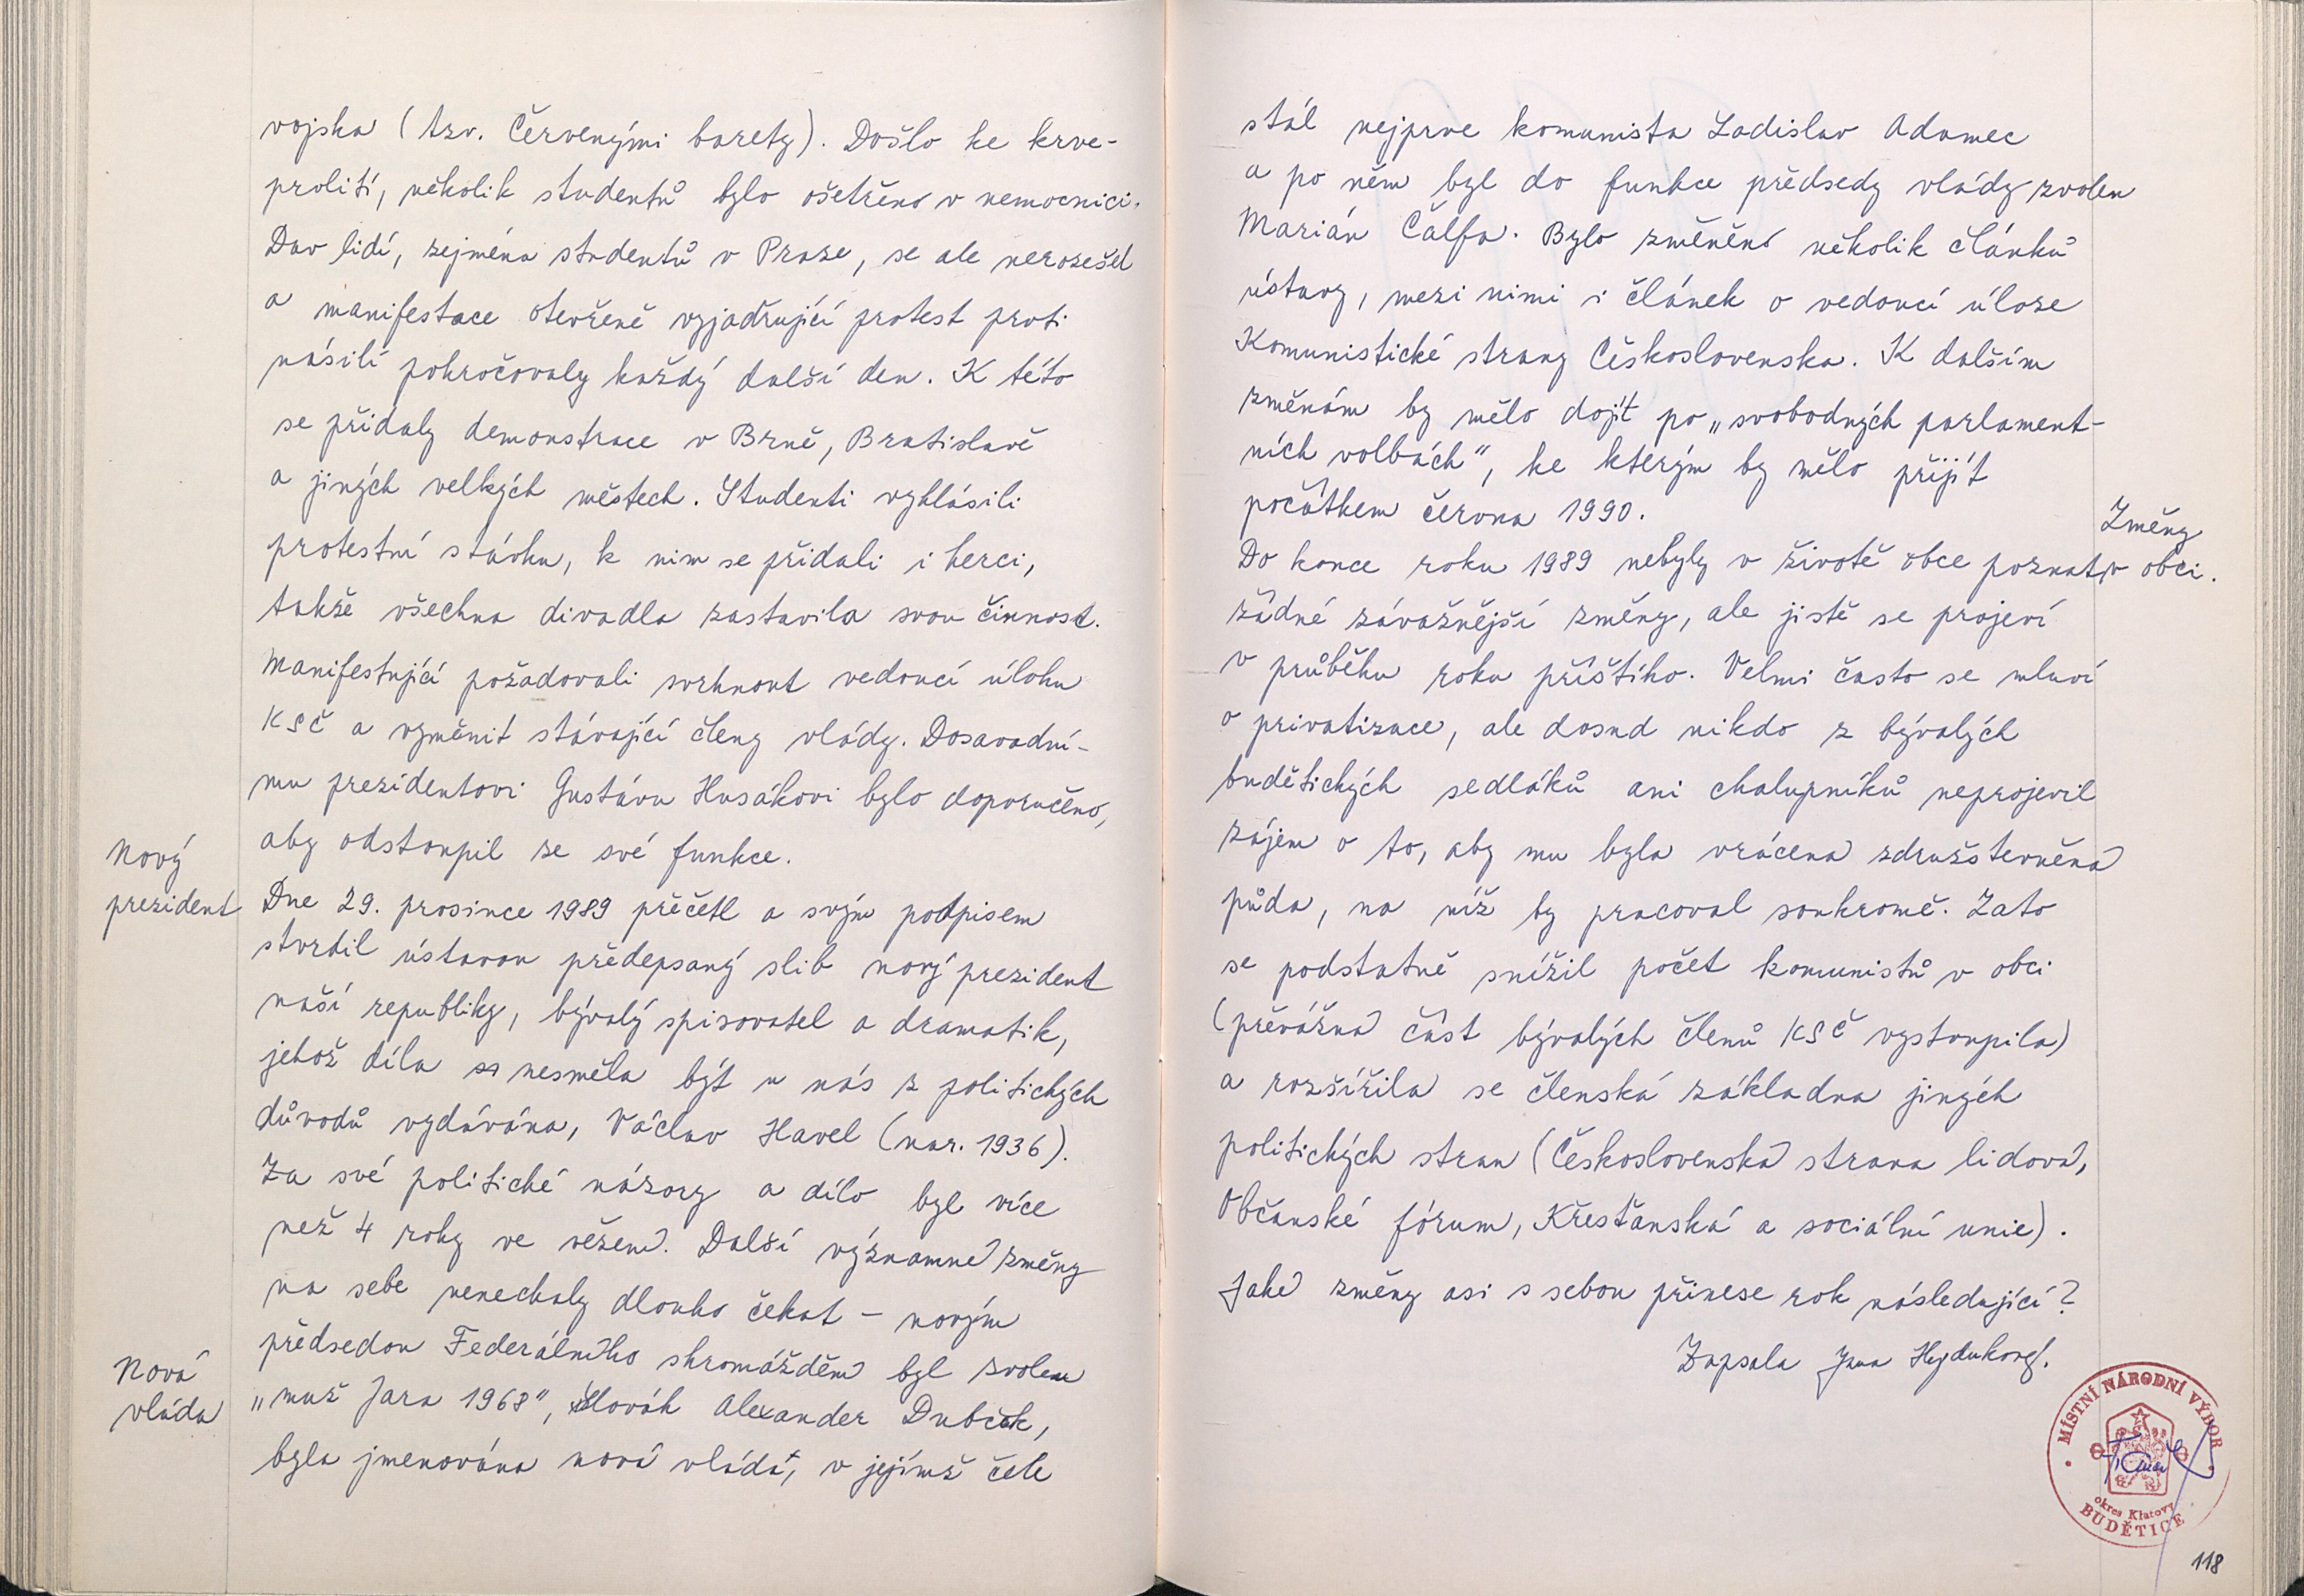 vojska (tzv. Červenými barety). Došlo ke krve-
prolití, několik studentů bylo ošetřeno v nemocnici.
Dav lidí, zejména studentů v Praze, se ale nerozešel
a manifestace otevřeně vyjadřující protest proti
násilí pokročovaly každý další den. K této
se přidaly demonstrace v Brně, Bratislavě
a jiných velkých městech. Studenti vyhlásili
protestní stávku, k nim se přidali i herci,
takže všechna divadla zastavila svou činnost.
Manifestující požadovali svrhnout vedoucí úlohu
KSČ a vyměnit stávající členy vlády. Dosavadní-
mu prezidentovi Gustávu Husákovi bylo doporučeno,
aby odstoupil ze své funkce.
Nový
prezident
Dne 29. prosince 1989 přečetl a svým podpisem
stvrdil ústavou předepsaný slib nový prezident
naší republiky, bývalý spisovatel a dramatik,
jehož díla nesměla být u nás z politických
důvodů vydávána, Václav Havel (nar. 1936).
Za své politické názory a dílo byl více
než 4 roky ve vězení. Další významné změny
na sebe nenechaly dlouho čekat – novým
předsedou Federálního shromáždění byl zvolen
Nová
vláda
„muž Jara 1968", Slovák Alexander Dubček,
byla jmenována nová vláda, v jejímž čele
stál nejprve komunista Ladislav Adamec
a po něm byl do funkce předsedy vlády zvolen
Marián Čalfa. Bylo změněno několik článků
ústavy, mezi nimi i článek o vedoucí úloze
Komunistické strany Československa. K dalším
změnám by mělo dojít po „svobodných parlament-
ních volbách", ke kterým by mělo přijít
počátkem června 1990.
Změny
v obci.
Do konce roku 1989 nebyly v životě obce poznat
žádné závažnější změny, ale jistě se projeví
v průběhu roku příštího. Velmi často se mluví
o privatizace, ale dosud nikdo z bývalých
budětických sedláků ani chalupníků neprojevil
zájem o to, aby mu byla vrácena združstevněná
půda, na níž by pracoval soukromě. Zato
se podstatně snížil počet komunistů v obci
(převážná část bývalých členů KSČ vystoupila)
a rozšířila se členská základna jiných
politických stran (Československá strana lidová,
Občanské fórum, Křesťanská a sociální unie).
Jaké změny asi s sebou přinese rok následující?
Zapsala Jana Hejduková.
MÍSTNÍ NÁRODNÍ VÝBOR
okres Klatovy
BUDĚTICE
118